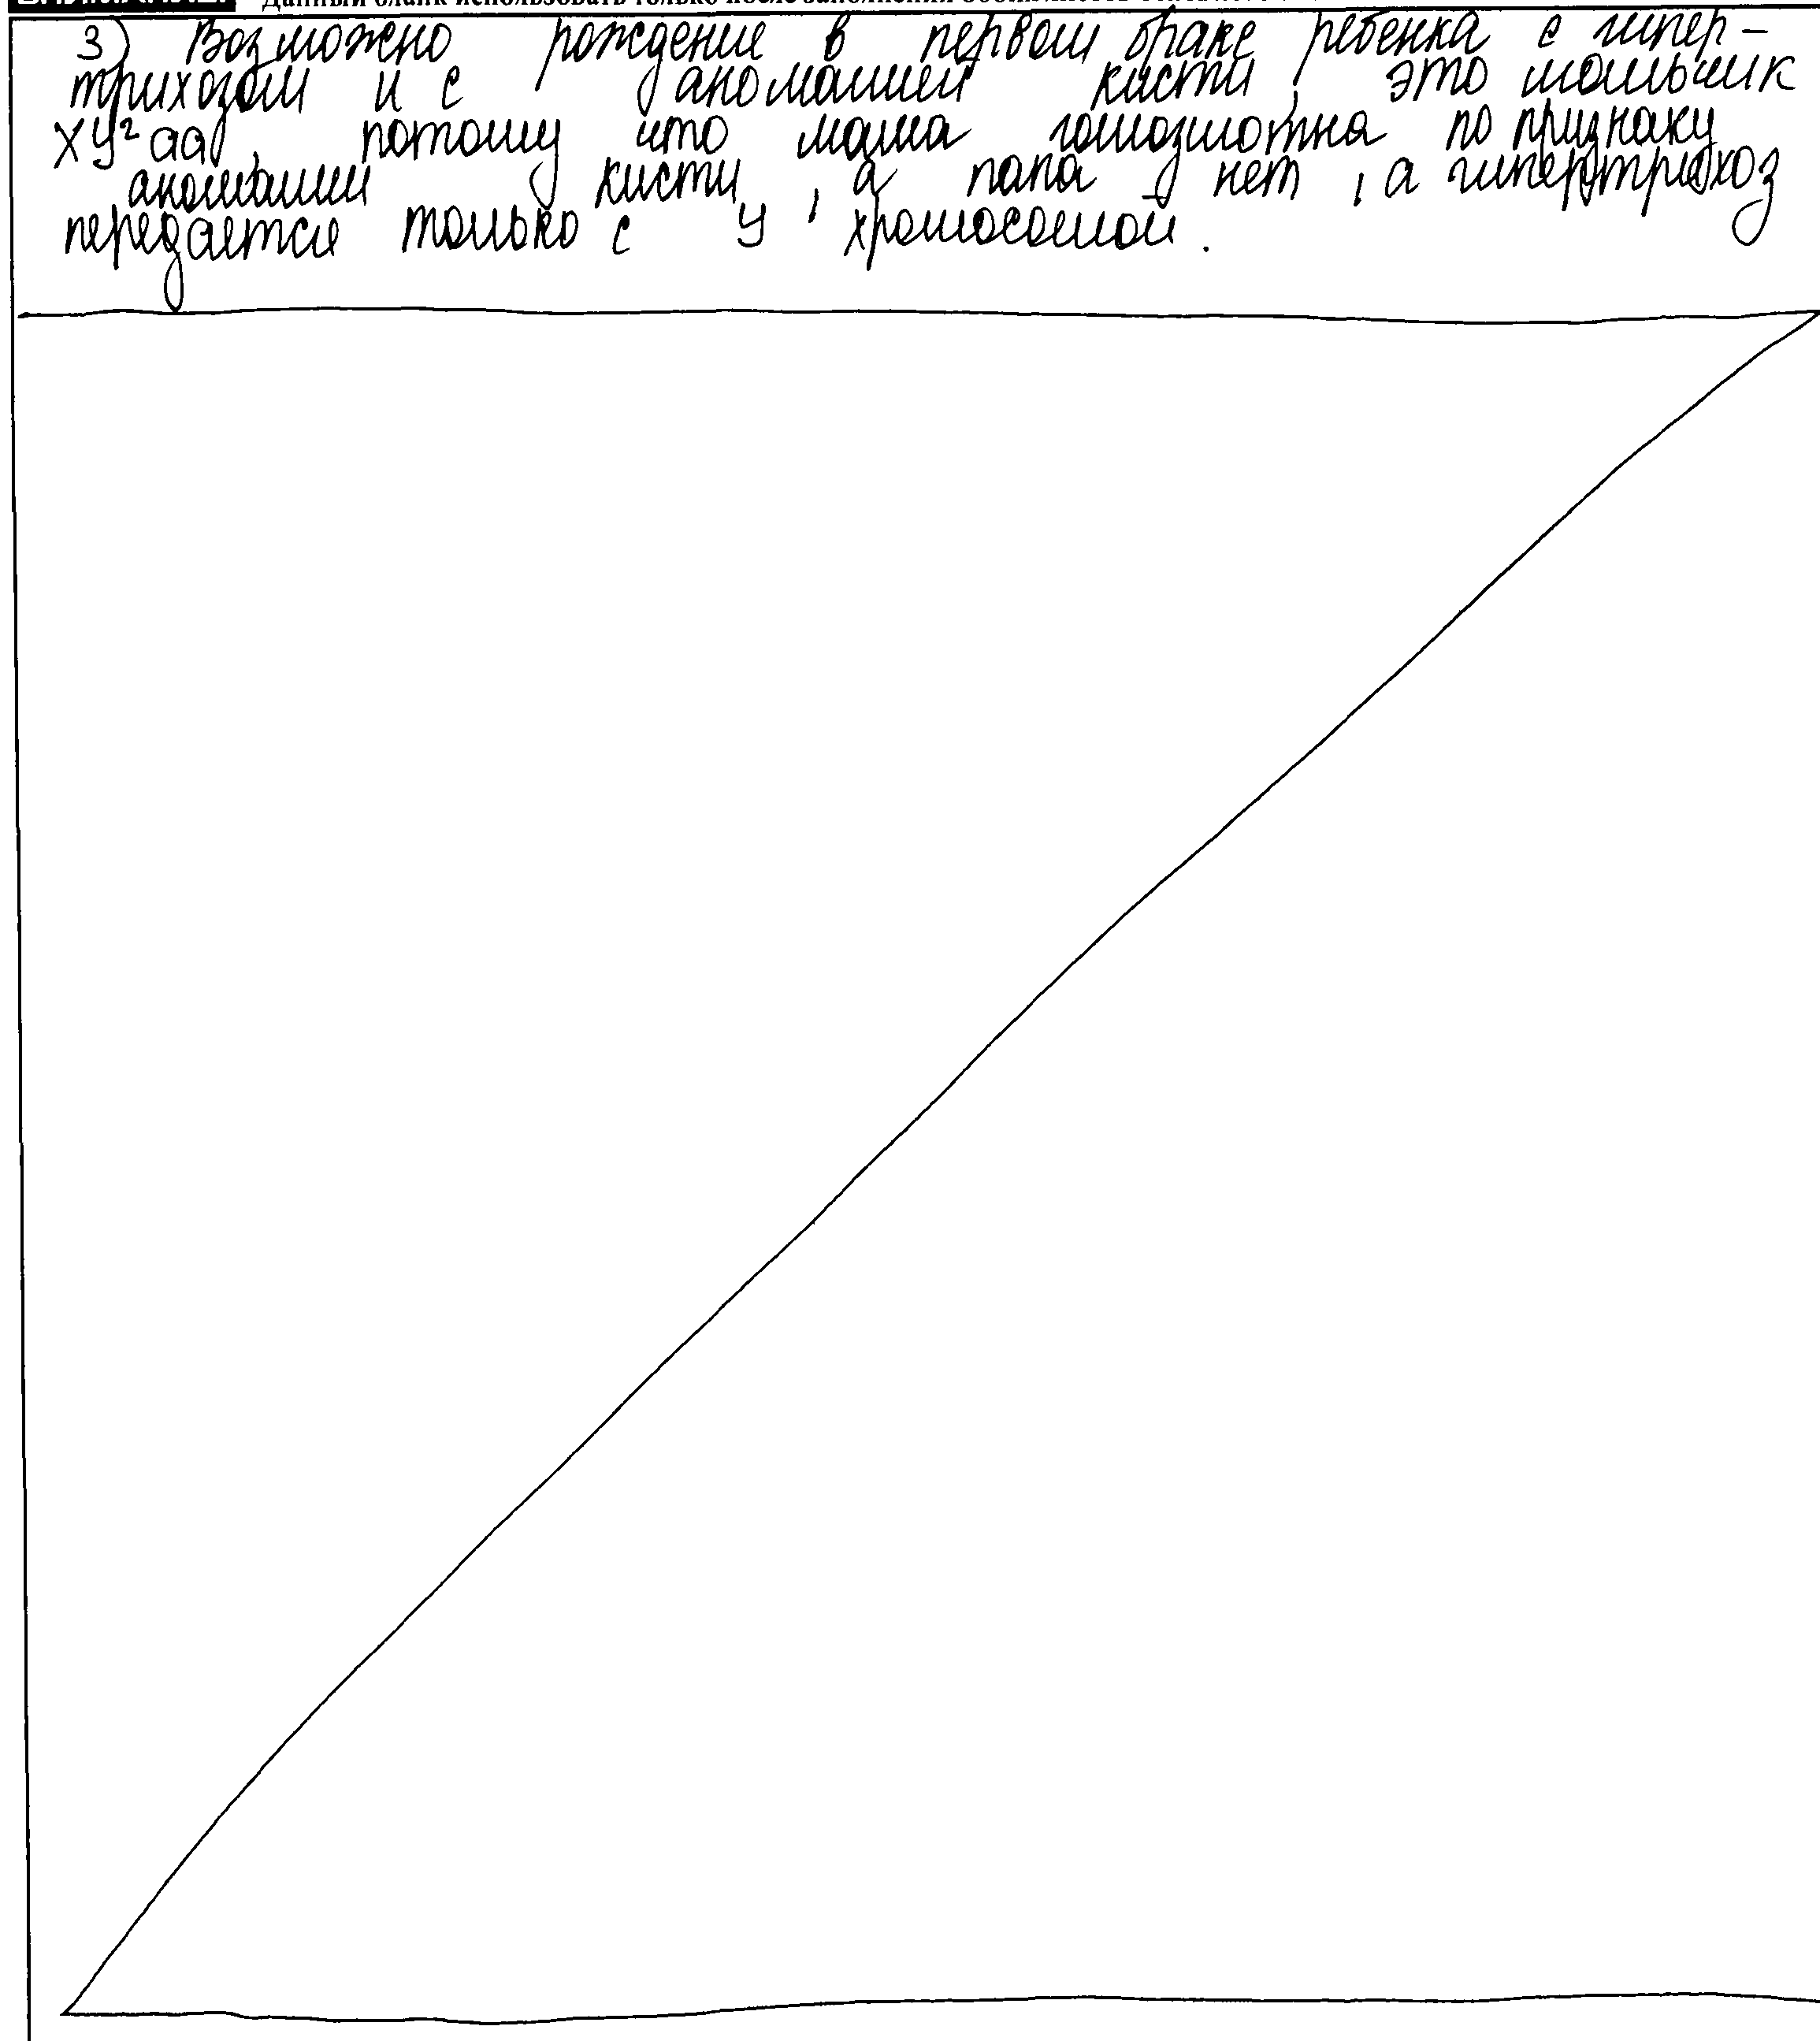 Данный бланк использовать только после заполнения
3) Возможно рождение в первом браке ребенка с гипер-
трихозом и с аномалией кисти, это мальчик
XYᶻ aa, потому что мама гомозиготна по признаку
аномалии кисти, а папа нет, а гипертрихоз
передается только с У хромосомой.